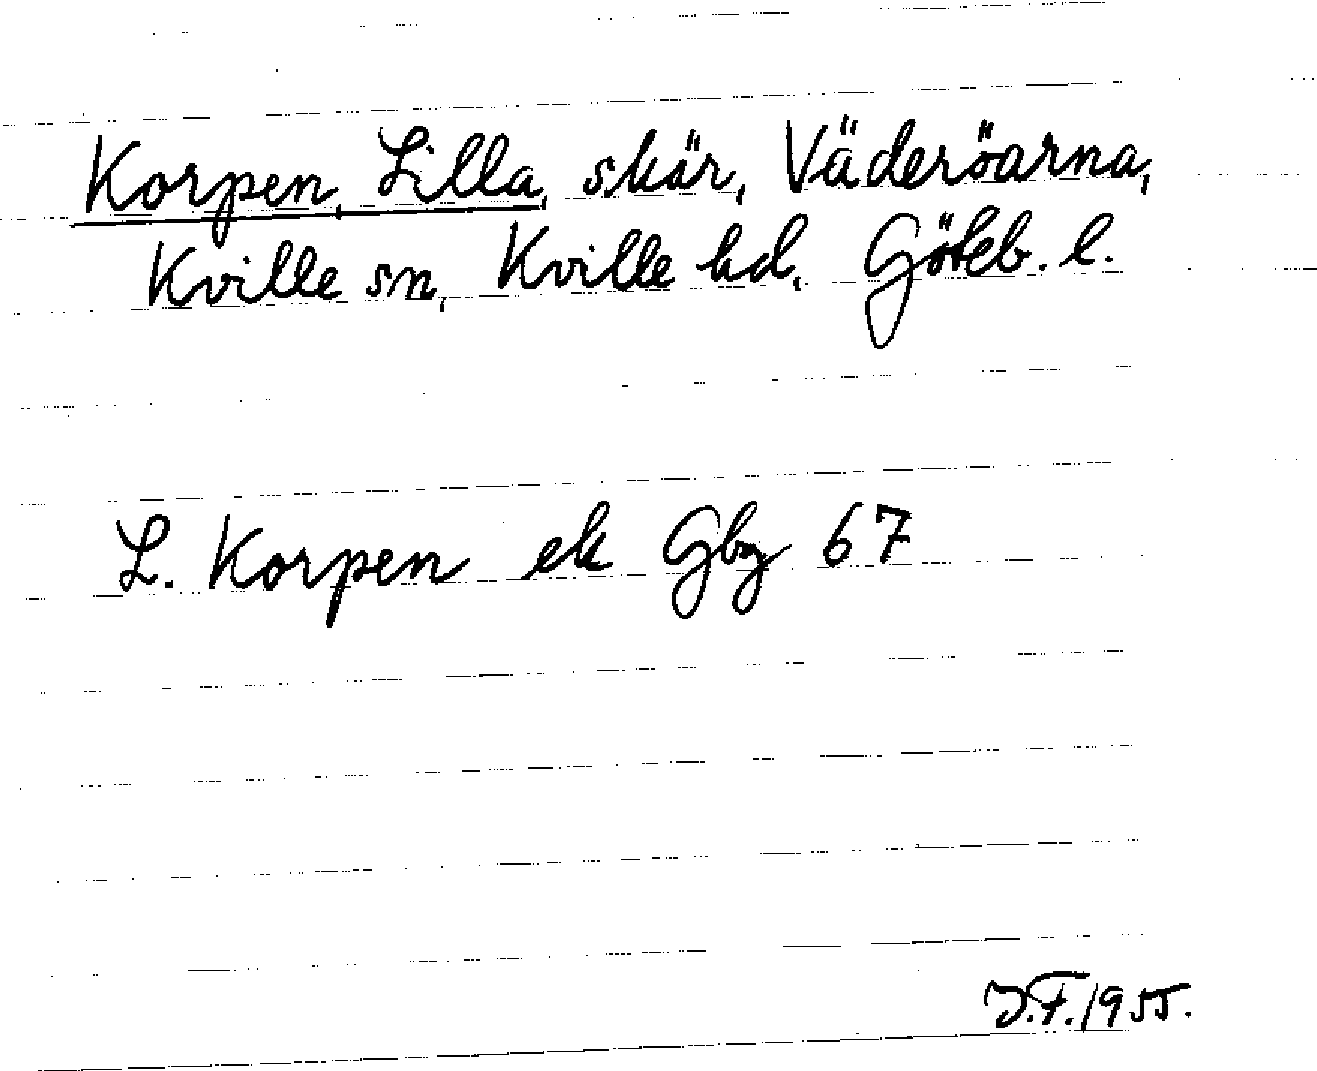 Korpen, Lilla, skär, Väderöarna,
Kville sn, Kville hd, Göteb. l.
L. Korpen ek Gbg 67
J.F. 1955.